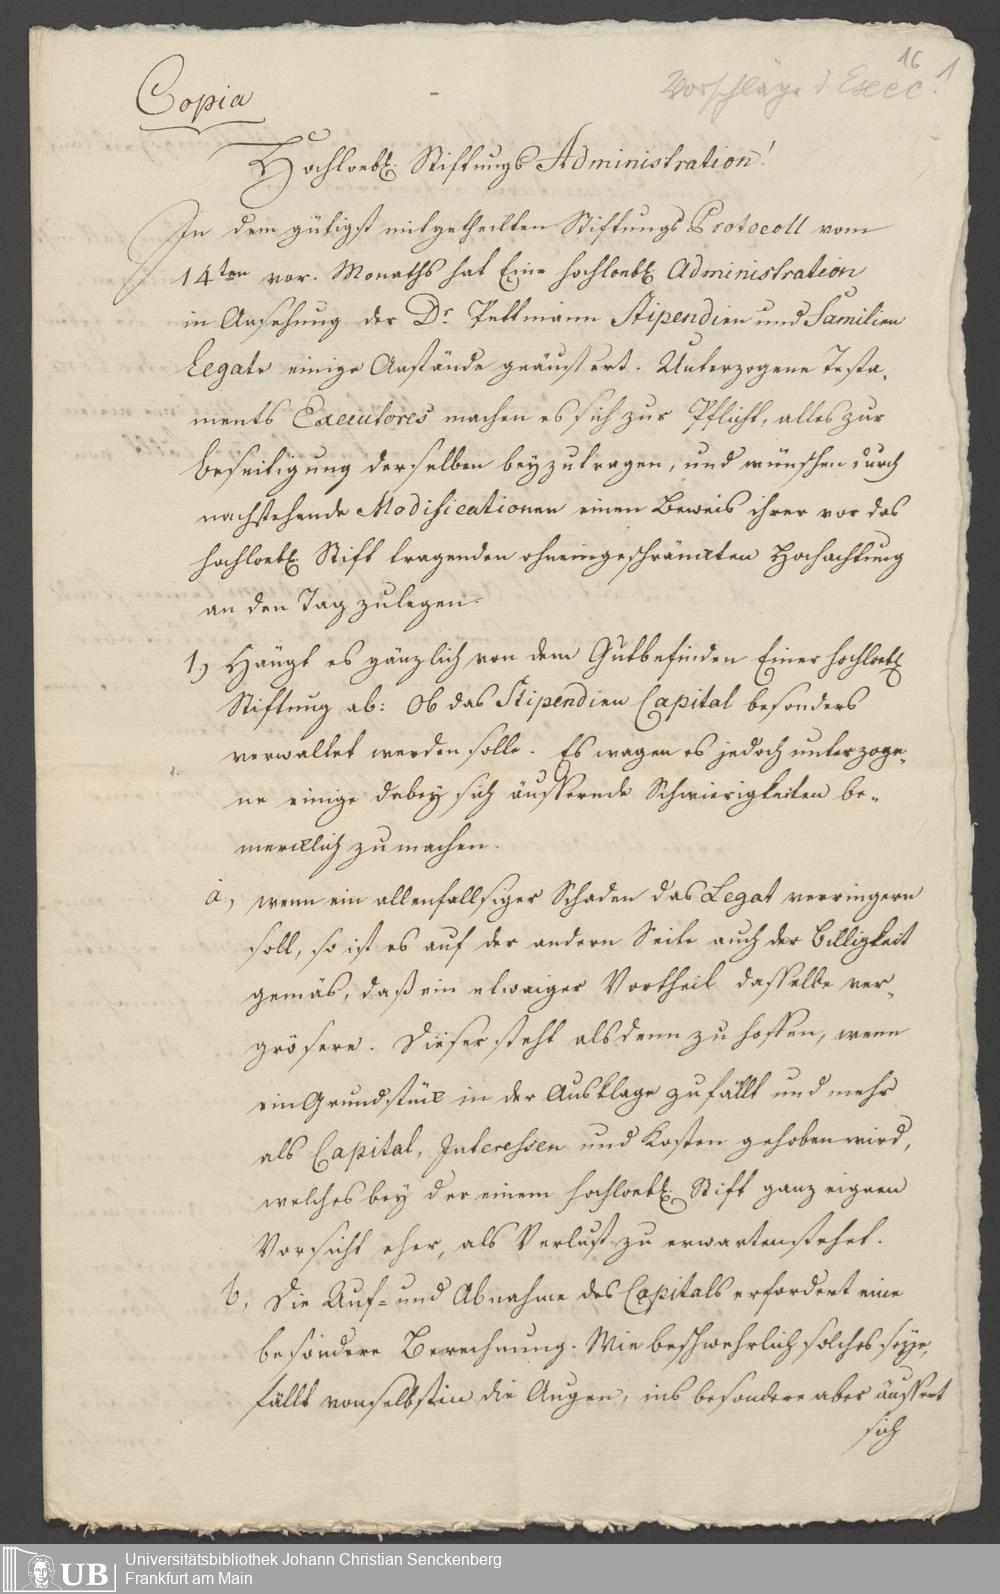 16
1
Vorschläge d Exec.
Copia
Hochloebl. Stiftungs Administration!
In dem gütigst mitgetheilten Stiftungs Protocoll vom
14ten vor. Monaths hat Eine hochloebl. Administration
in Ansehung der Dr. Pettmann Stipendien und Familien
Legate einige Anstände geäussert. Unterzogene Testa-
ments Executores machen es sich zur Pflicht, alles zur
Beseitigung derselben beyzutragen, und wünschen durch
nachstehende Modificationen einen Beweis ihrer vor das
hochloebl. Stift tragenden ohneingeschränckten Hochachtung
an den Tag zulegen.
1.) Hängt es gänzlich von dem Gutbefinden Einer hochloebl.
Stiftung ab: Ob das Stipendien Capital besonders
verwaltet werden solle. Es wagen es jedoch unterzoge-
ne einige dabey sich äussernde Schwierigkeiten be-
mercklich zu machen.
a, wenn ein allenfallsiger Schaden das Legat verringern
soll, so ist es auf der andern Seite auch der Billigkeit
gemäs, daß ein etwaiger Vortheil dasselbe ver-
grösere. Dieser steht alsdenn zu hoffen, wenn
ein Grundstück in der Ausklage zufällt und mehr
als Capital, Interessen und Kosten gehoben wird,
welches bey der einem hochloebl. Stift ganz eignen
Vorsicht eher, als Verlust zu erwarten stehet.
b, Die Auf- und Abnahme des Capitals erfordert eine
besondere Berechnung. Wie beschwehrlich solches seye,
fällt von selbst in die Augen, ins besondere aber äussert
sich
UB
Universitätsbibliothek Johann Christian Senckenberg
Frankfurt am Main